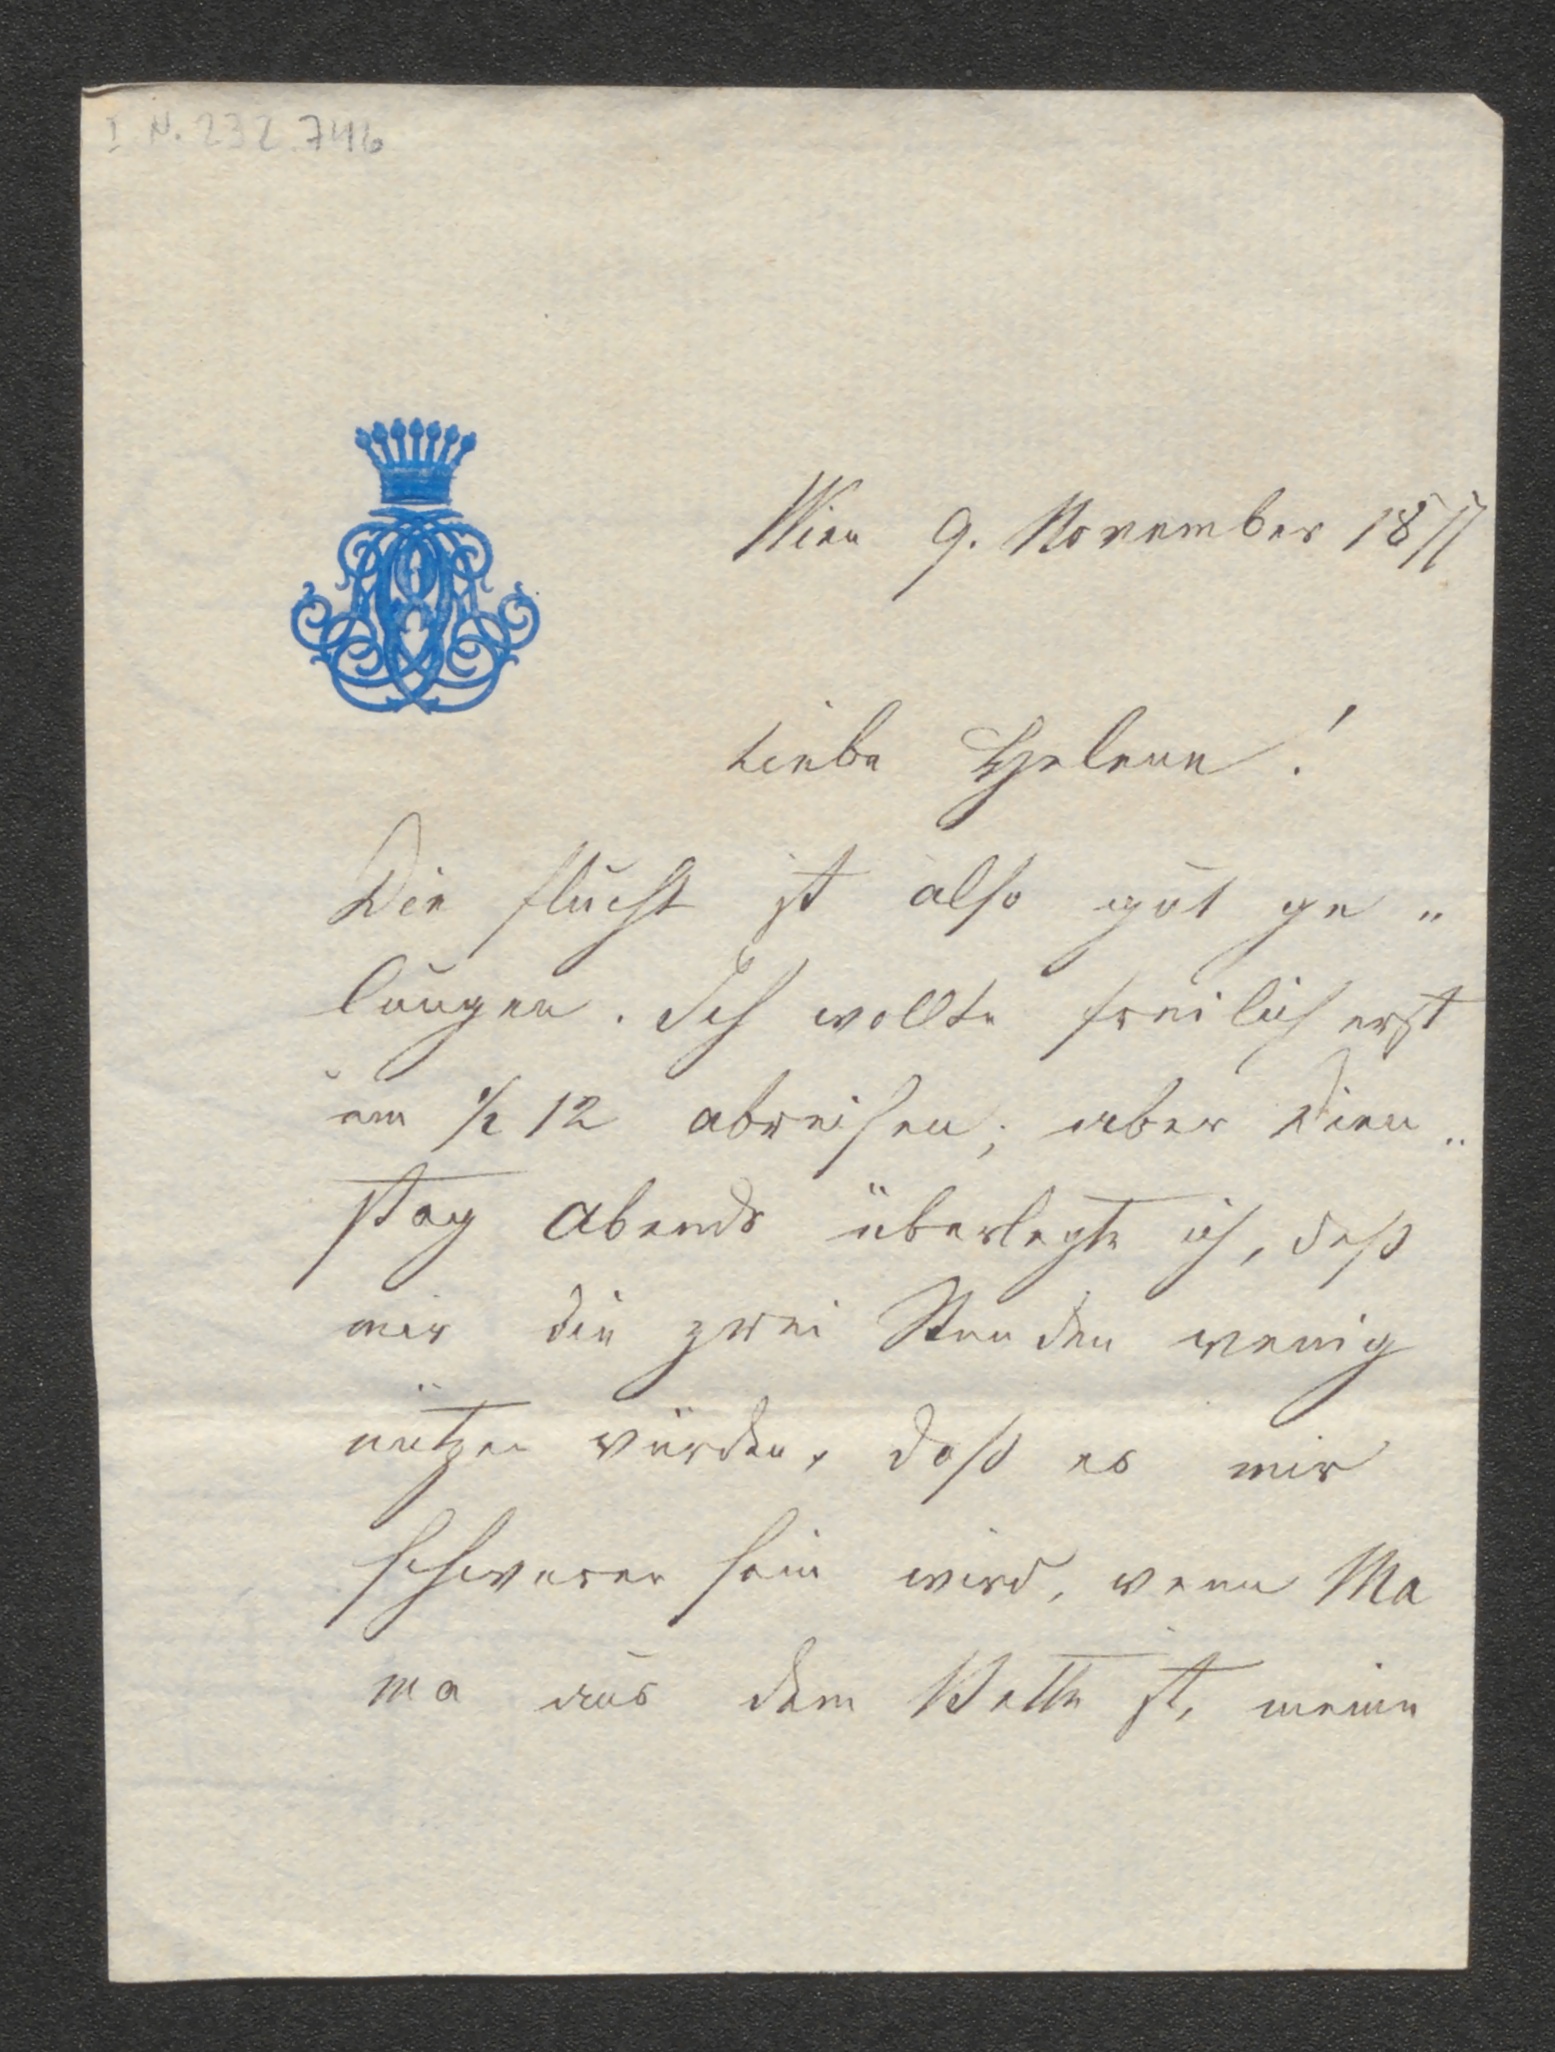 I. N. 232.746
Wien 9. November 1877
Liebe Helene!
Die Flucht ist also gut ge„
lungen. Ich wollte freilich erst
um 1/2 12 abreisen; aber Dien„
stag Abends überlegte ich, daß
mir die zwei Stunden wenig
nützen würden, daß es mir
schwerer sein wird, wenn Ma
ma aus dem Bette ist, meine